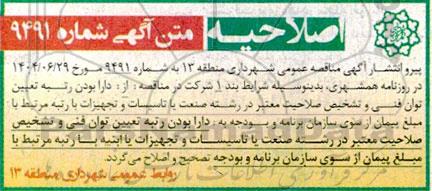 اصلاحیه
متن آگهی شماره ۹۴۹۱
پیرو انتشار آگهی مناقصه عمومی شهرداری منطقه ۱۳ به شماره ۹۴۹۱ مورخ ۱۴۰۴/۰۶/۲۹
در روزنامه همشهری، بدینوسیله شرایط بند ۱ شرکت در مناقصه : از : دارا بودن رتبه تعیین
توان فنی و تشخیص صلاحیت معتبر در رشته صنعت یا تاسیسات و تجهیزات با رتبه مرتبط با
مبلغ پیمان از سوی سازمان برنامه و بودجه به : دارا بودن رتبه تعیین توان فنی و تشخیص
صلاحیت معتبر در رشته صنعت یا تاسیسات و تجهیزات یا ابنیه با رتبه مرتبط با
مبلغ پیمان از سوی سازمان برنامه و بودجه تصحیح و اصلاح می‌گردد.
روابط عمومی شهرداری منطقه ۱۳